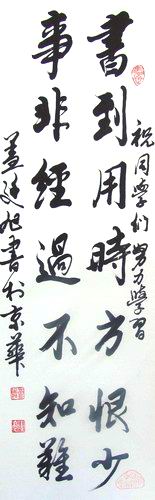 書到用時方恨少
事非經過不知難
祝同學們努力學習
蓋廷旭書於京華